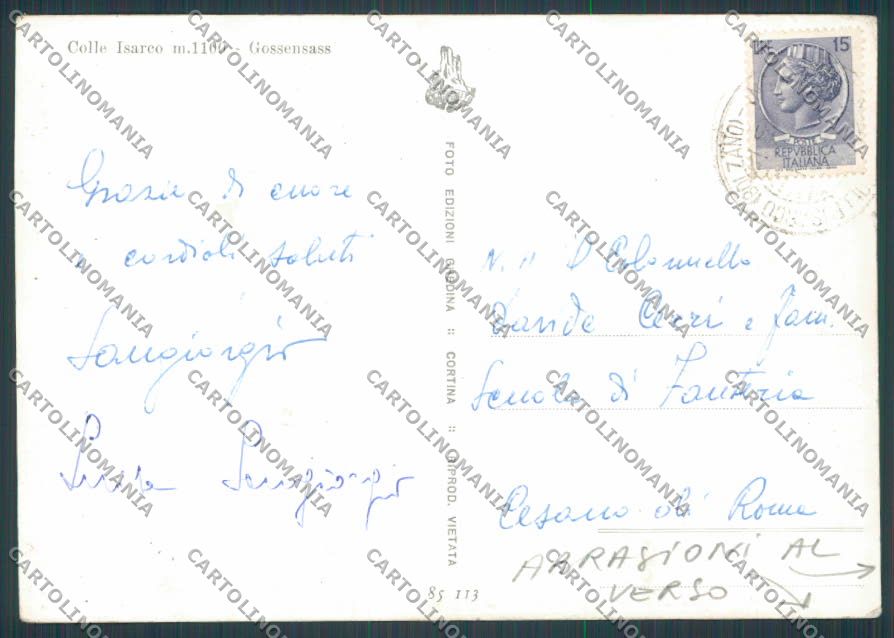 Colle Isarco m.1100 - Gossensass
Grazie di cuore
e cordiali saluti
Sangiorgio
Sangiorgio
FOTO EDIZIONI GHEDINA :: CORTINA :: RIPROD. VIETATA
85 113
15
POSTE
REPVBBLICA
ITALIANA
Colonnello
Davide Cerri e fam.
Scuola di Fanteria
Cesano di Roma
ABRASIONI AL
VERSO
CARTOLINOMANIA